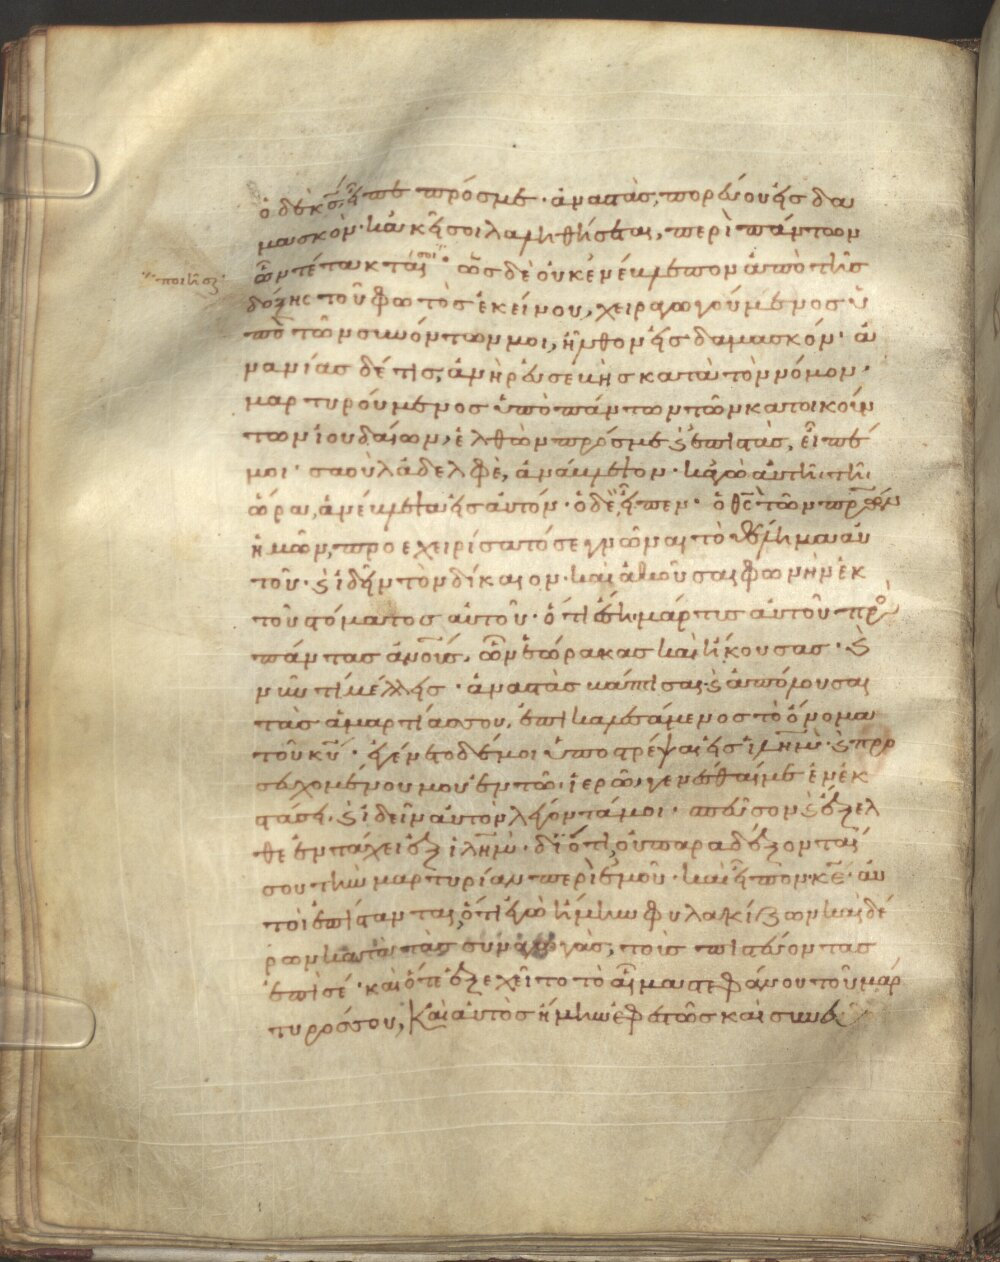 ὁ δὲ κς̅ εἶπε πρός με· ἀναστὰς, πορεύου εἰς δα
μασκὸν· κἀκεῖ σοι λαληθήσεται, περὶ πάντων
ὧν τέτακταί σοι ὡς δὲ οὐκ ἐνέβλεπον ἀπὸ τῆς
ποιῆσαι
δόξης τοῦ φωτὸς ἐκείνου, χειραγωγούμενος ὑ
πὸ τῶν συνόντων μοι, ἦλθον εἰς δαμασκόν· ἀ
νανίας δέ τις, ἀνὴρ εὐσεβὴς κατὰ τὸν νόμον·
μαρτυρούμενος ὑπὸ πάντων τῶν κατοικούν
των ἰουδαίων, ἐλθὼν πρός με ϗ ἐπιστὰς, εἶπέ
μοι· σαοὺλ ἀδελφὲ, ἀνάβλεψον· κἀγὼ αὐτῆ τῆ
ὥρα, ἀνέβλεψα εἰς αὐτόν· ὁ δὲ εἶπεν· ὁ θς̅ τῶν πρων̅
ἡμῶν, προεχειρίσατό σε γνῶναι τὸ θέλημα αὐ
τοῦ· ϗ ἰδεῖν τὸν δίκαιον· καὶ ἀκοῦσαι φωνὴν ἐκ
τοῦ στόματος αὐτοῦ· ὅτι ἔση μάρτυς αὐτοῦ πρὸς
πάντας ἀνους̅, ὧν ἑώρακας καὶ ἤκουσας· ϗ
νῦν τί μέλλεις· ἀναστὰς βάπτισαι ϗ ἀπόλουσαι
τὰς ἁμαρτίας σου, ἐπικαλεσάμενος τὸ ὄνομα
τοῦ κυ̅· ἐγένετο δέ μοι ὑποστρέψαι εἰς ἱλημ̅· ϗ προ
σευχομένου μου ἐν τῶ ἱερῶ, γενέσθαι με ἐν ἐκ
στάσει· ϗ ἰδεῖν αὐτὸν λέγοντά μοι· σπεῦσον ϗ ἔξελ
θε ἐν τάχει ἐξ ἱλημ̅· διότι, οὐ παραδέξονταί
σου τὴν μαρτυρίαν περὶ ἐμοῦ· καὶ εἶπον· κε̅· αὐ
τοὶ ἐπίστανται, ὅτι ἐγὼ ἤμην φυλακίζων καὶ δέ
ρων κατὰ τὰς συναγωγὰς, τοὺς πιστεύοντας
ἐπὶ σέ· καὶ ὅτε ἐξεχεῖτο τὸ αἷμα στεφάνου τοῦ μάρ
τυρός σου, καὶ αὐτὸς ἤμην ἐφεστὼς καὶ συνευ